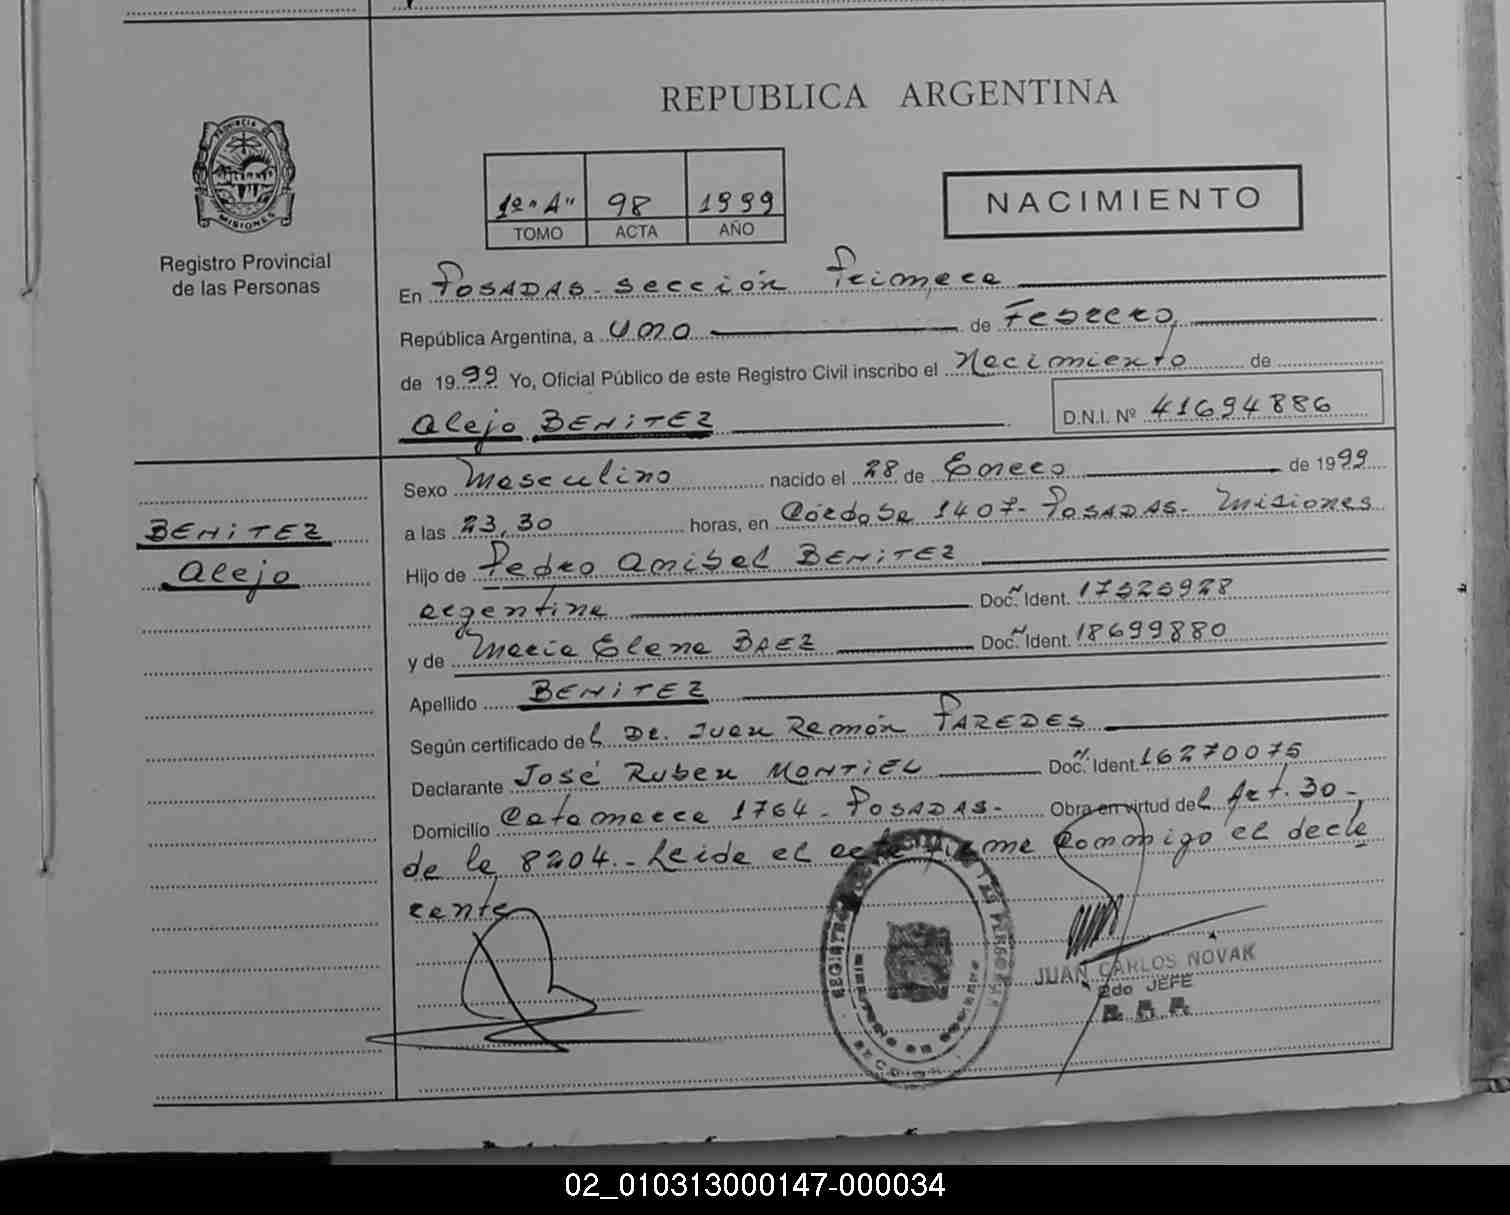 REPUBLICA ARGENTINA
PROVINCIA DE
MISIONES
Registro Provincial
de las Personas
1º "A" 98 1999
TOMO ACTA AÑO
NACIMIENTO
En POSADAS - sección Primera
República Argentina, a uno de Febrero
de 1999 Yo, Oficial Público de este Registro Civil inscribo el Nacimiento de
Alejo BENITEZ D.N.I. Nº 41694886
BENITEZ
Alejo
Sexo Masculino nacido el 28 de Enero de 1999
a las 23,30 horas, en Córdoba 1407 - POSADAS - Misiones
Hijo de Pedro Anibal BENITEZ
argentina Doc. Ident.
y de Maria Elena BAEZ Doc. Ident. 18699880
Apellido BENITEZ
Según certificado del Dr. Juan Ramón PAREDES
Declarante José Ruben MONTIEL Doc. Ident. 16270075
Domicilio Catamarca 1764 - POSADAS - Obra en virtud del Art. 30 -
de la 8204 - Leida el acta firma conmigo el decla
rante
JUAN CARLOS NOVAK
2do JEFE
02_010313000147-000034